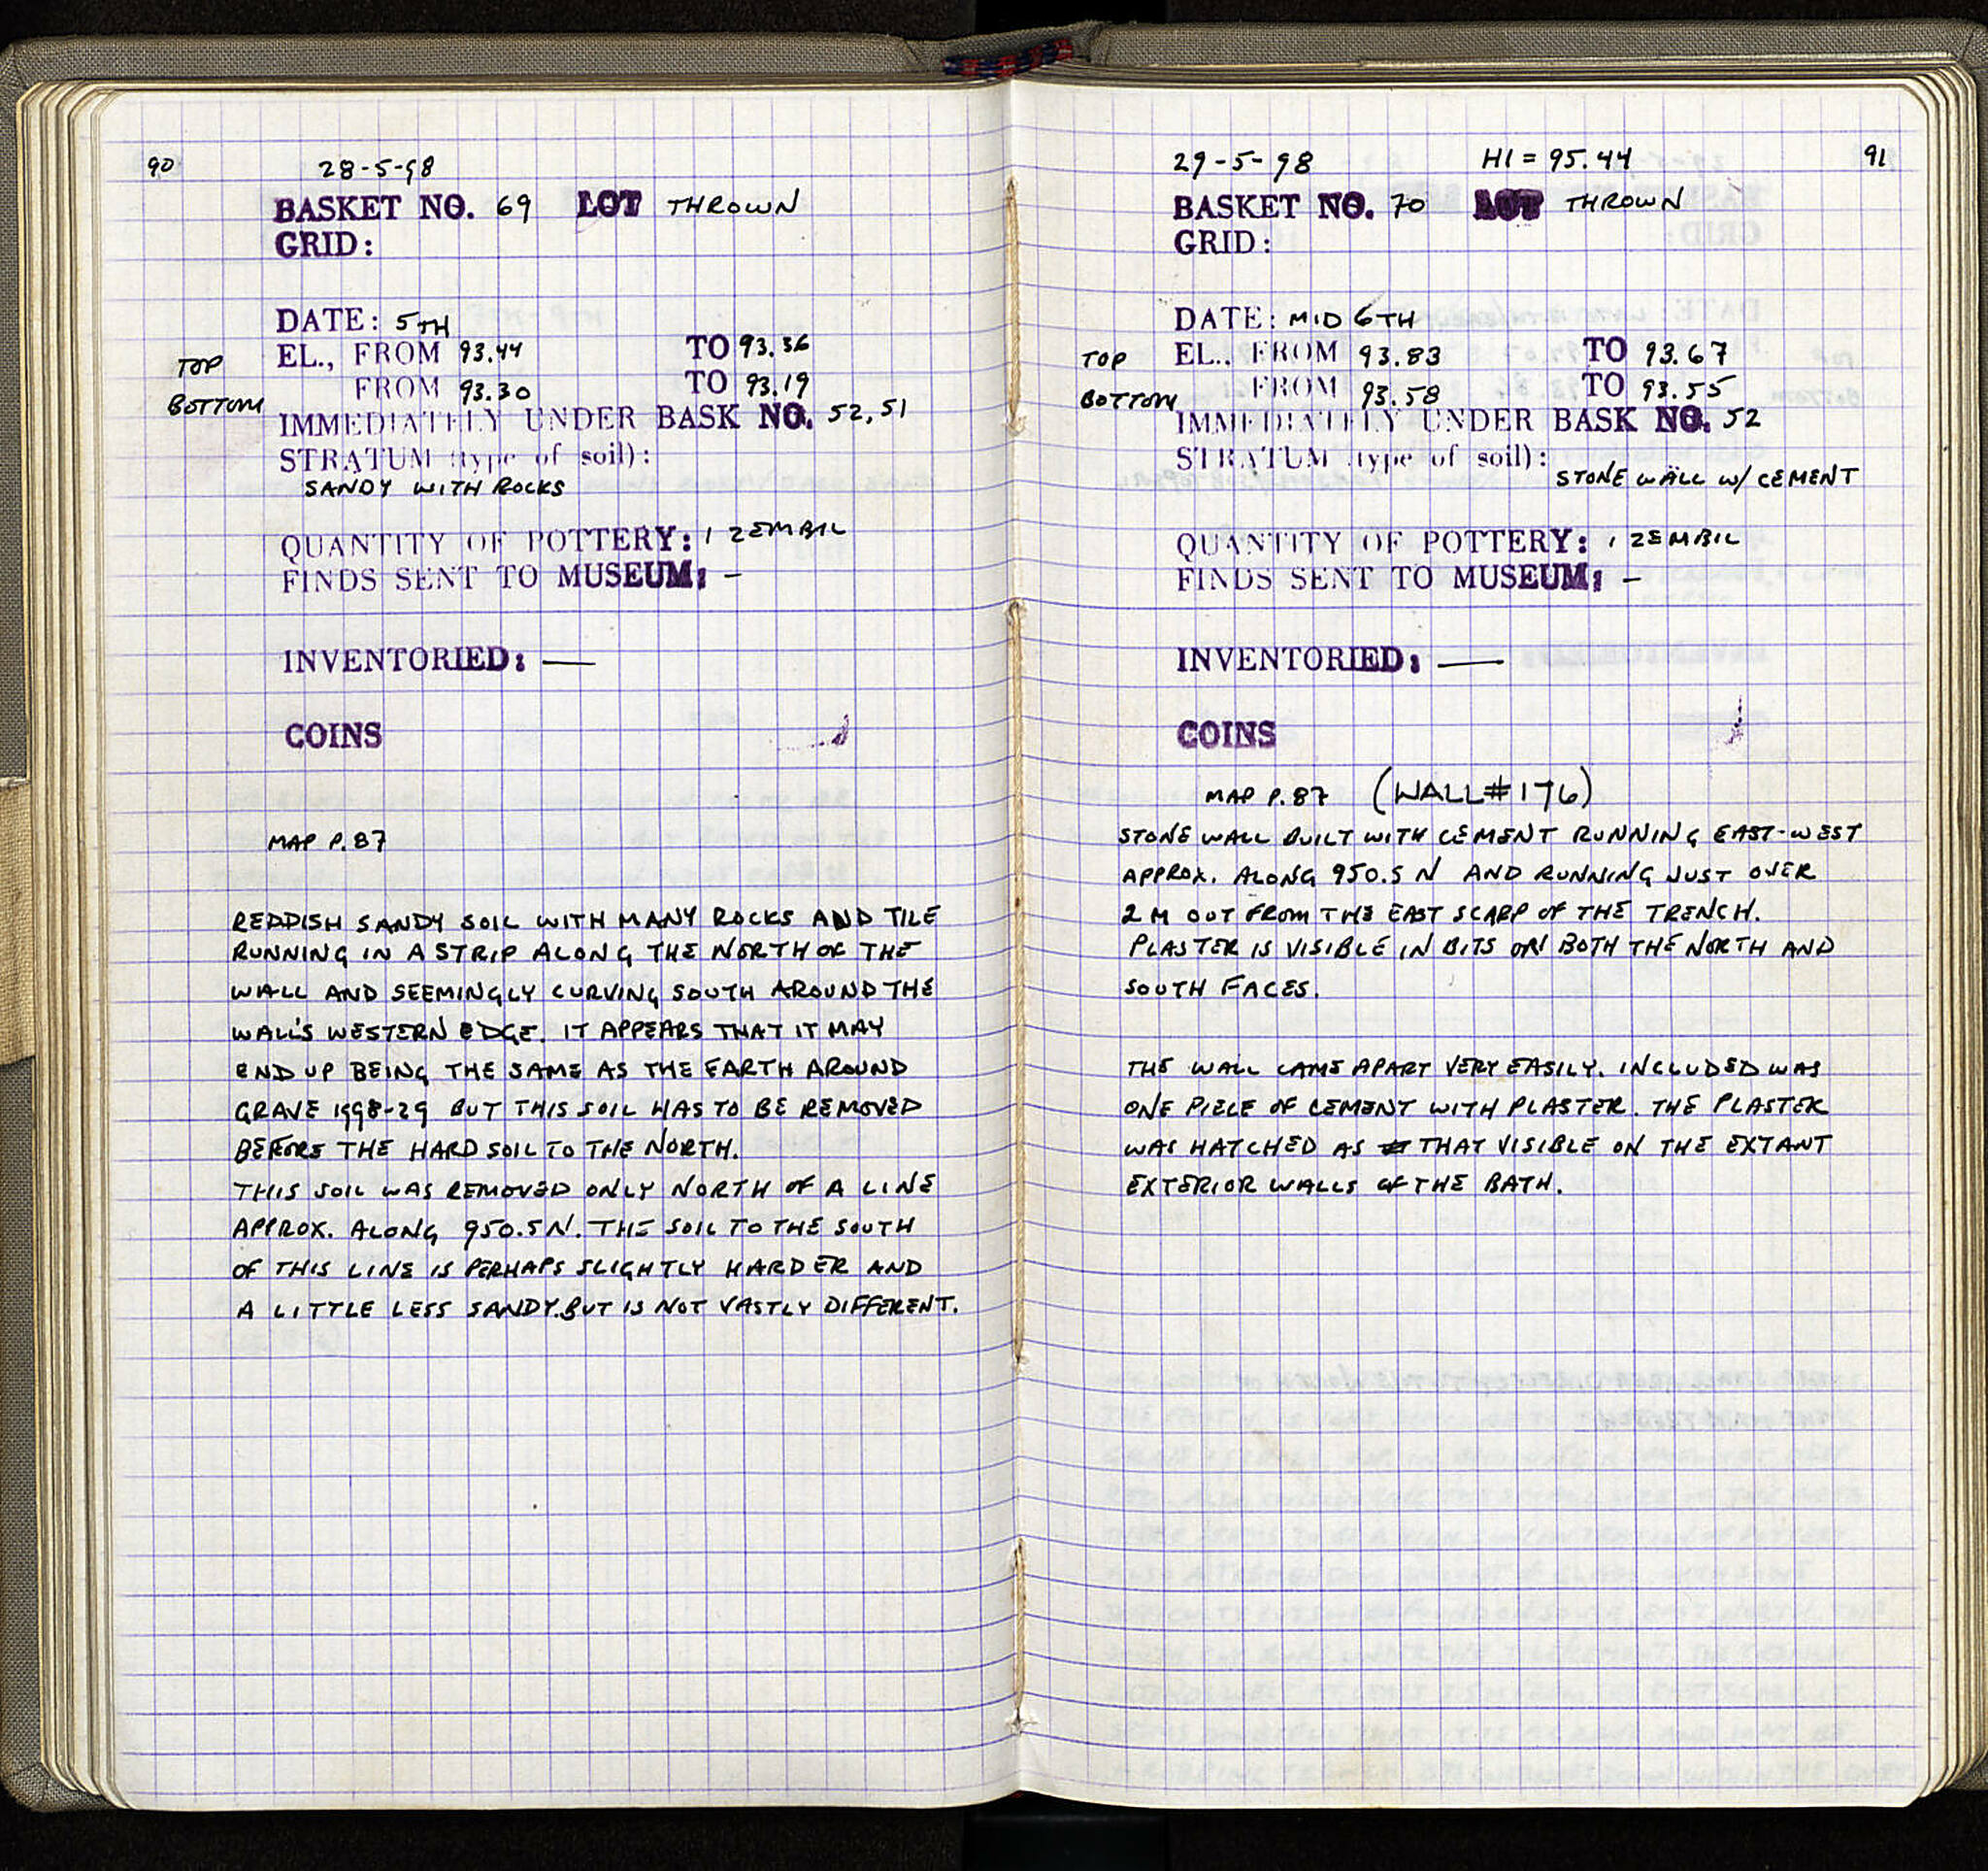 90
28-5-98
BASKET NO. 69 LOT THROWN
GRID:
DATE: 5TH
TOP EL., FROM 93.44 TO 93.36
BOTTOM FROM 93.30 TO 93.19
IMMEDIATELY UNDER BASK NO. 52, 51
STRATUM (type of soil):
SANDY WITH ROCKS
QUANTITY OF POTTERY: 1 ZEMBIL
FINDS SENT TO MUSEUM: -
INVENTORIED: —
COINS
MAP P. 87
REDDISH SANDY SOIL WITH MANY ROCKS AND TILE
RUNNING IN A STRIP ALONG THE NORTH OF THE
WALL AND SEEMINGLY CURVING SOUTH AROUND THE
WALL'S WESTERN EDGE. IT APPEARS THAT IT MAY
END UP BEING THE SAME AS THE EARTH AROUND
GRAVE 1998-29 BUT THIS SOIL HAS TO BE REMOVED
BEFORE THE HARD SOIL TO THE NORTH.
THIS SOIL WAS REMOVED ONLY NORTH OF A LINE
APPROX. ALONG 950.5 N. THE SOIL TO THE SOUTH
OF THIS LINE IS PERHAPS SLIGHTLY HARDER AND
A LITTLE LESS SANDY. BUT IS NOT VASTLY DIFFERENT.
29-5-98 HI = 95.44 91
BASKET NO. 70 LOT THROWN
GRID:
DATE: MID 6TH
TOP EL., FROM 93.83 TO 93.67
BOTTOM FROM 93.58 TO 93.55
IMMEDIATELY UNDER BASK NO. 52
STRATUM (type of soil):
STONE WALL W/ CEMENT
QUANTITY OF POTTERY: 1 ZEMBIL
FINDS SENT TO MUSEUM: -
INVENTORIED: —
COINS
MAP P. 87 (WALL #176)
STONE WALL BUILT WITH CEMENT RUNNING EAST-WEST
APPROX. ALONG 950.5 N AND RUNNING JUST OVER
2 M OUT FROM THE EAST SCARP OF THE TRENCH.
PLASTER IS VISIBLE IN BITS ON BOTH THE NORTH AND
SOUTH FACES.
THE WALL CAME APART VERY EASILY. INCLUDED WAS
ONE PIECE OF CEMENT WITH PLASTER. THE PLASTER
WAS HATCHED AS THAT VISIBLE ON THE EXTANT
EXTERIOR WALLS OF THE BATH.